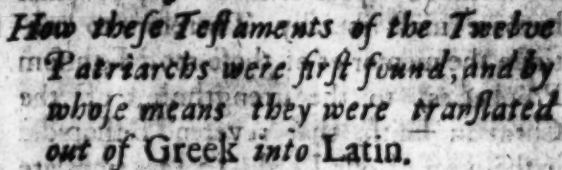 How theſe Teſtaments of the Twelve
Patriarchs were firſt found, and by
whoſe means they were tranſlated
out of Greek into Latin.